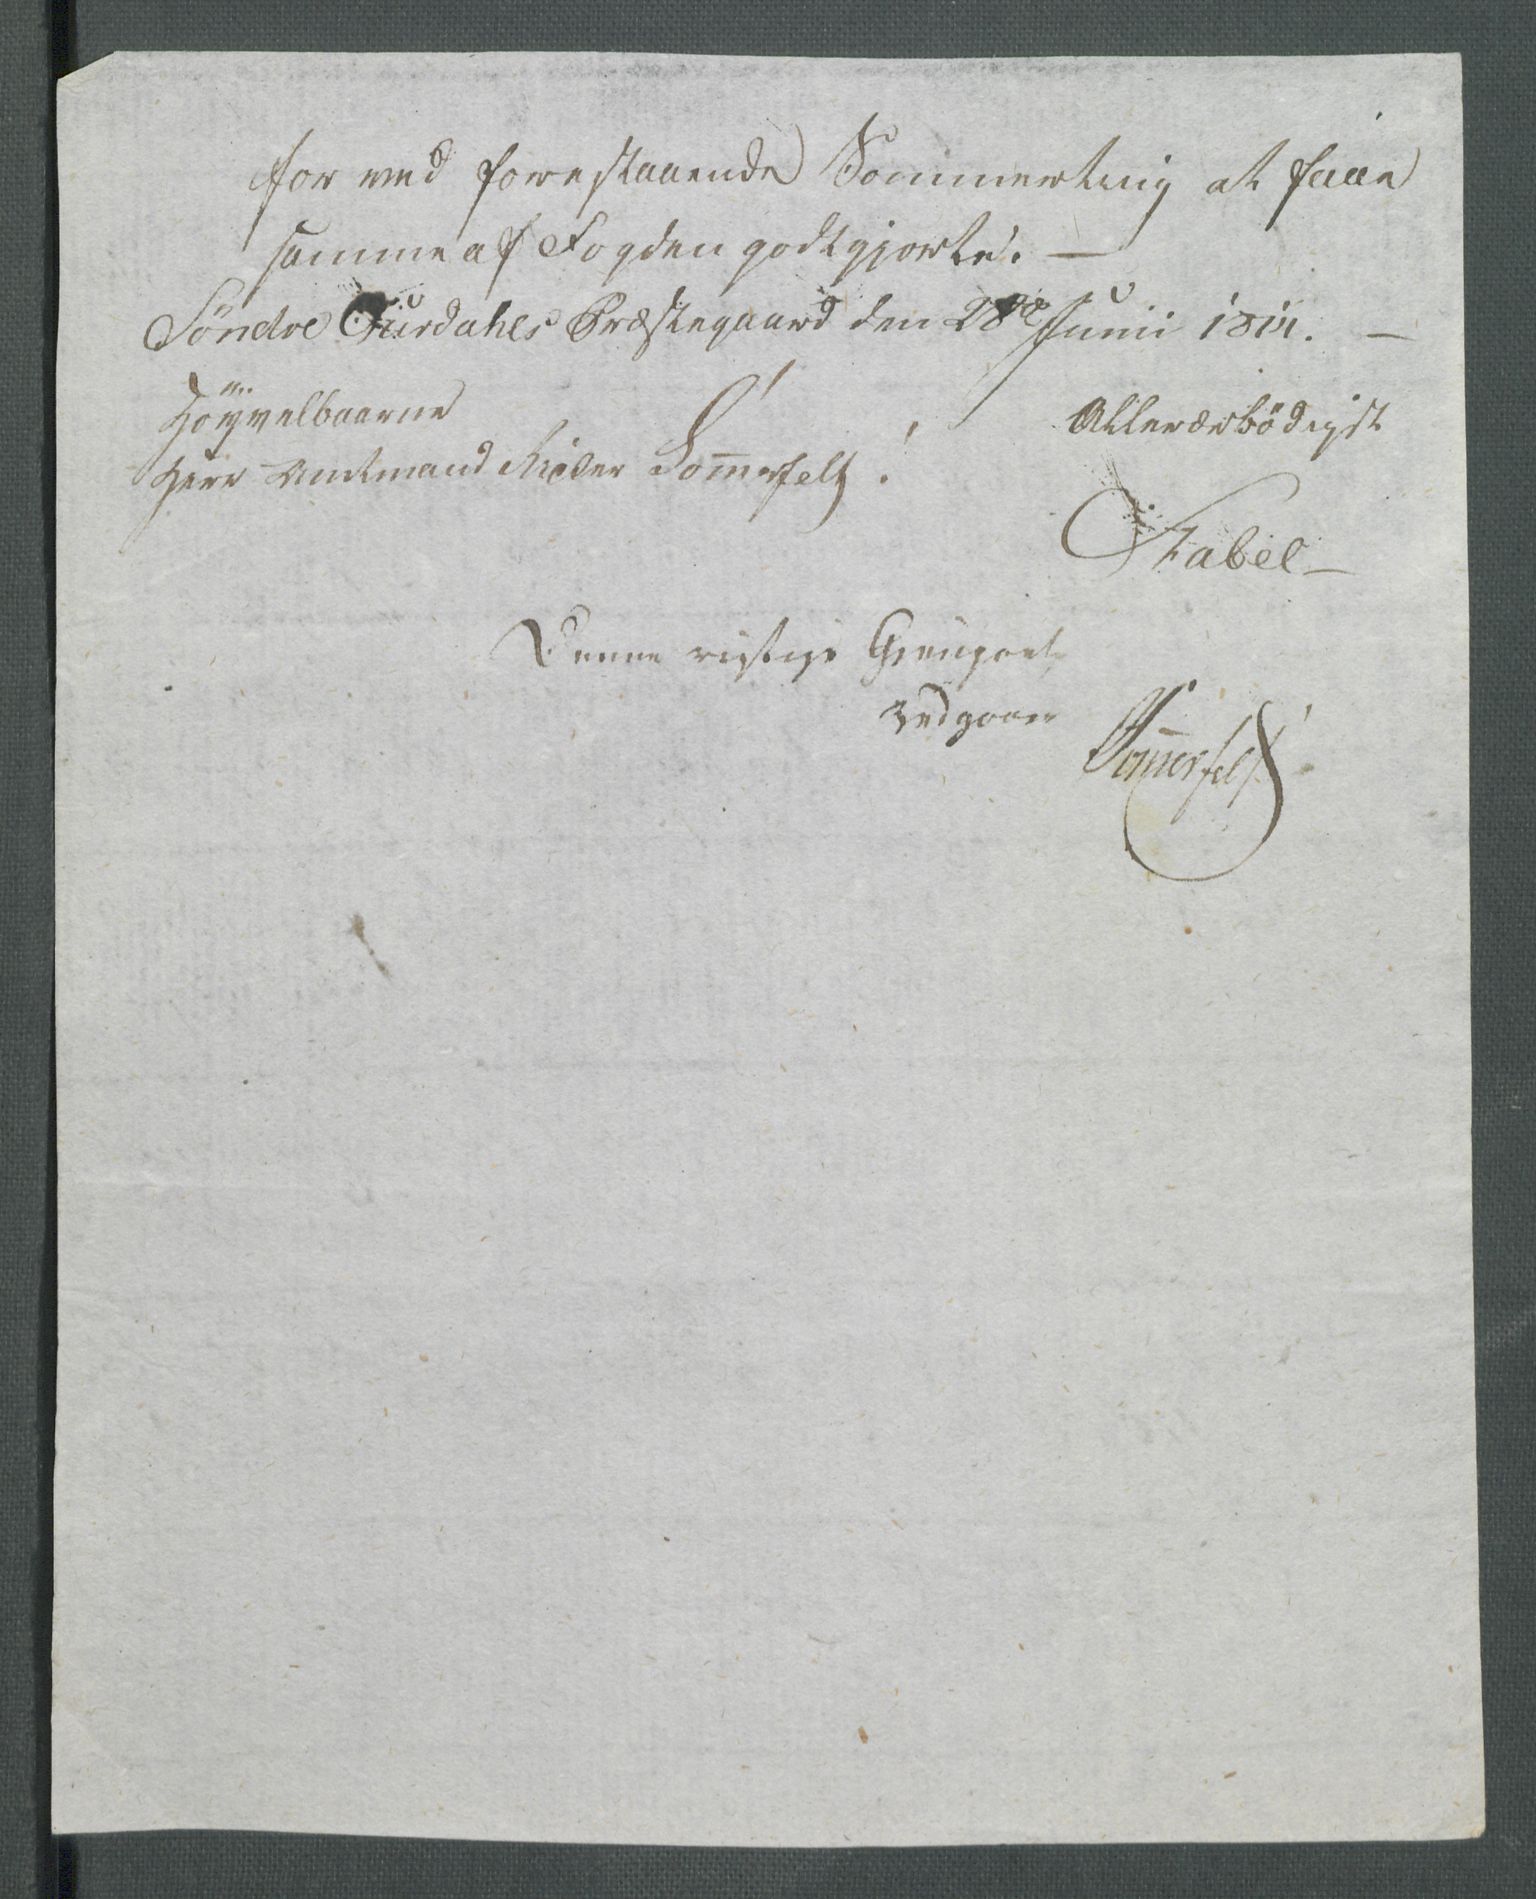 for ved forestaaende Sommerting at faae
samme af Fogden godtgjorte. —
Söndre Aurdahls Præstegaard den 28de Junii 1814. —
Höyvelbaarne
Herr Amtmand Ridder Som̅erfelt!
Allerærbödigst
Stabel
Denne rigtige Gienpart
Vedgaaer
Som̅erfelt